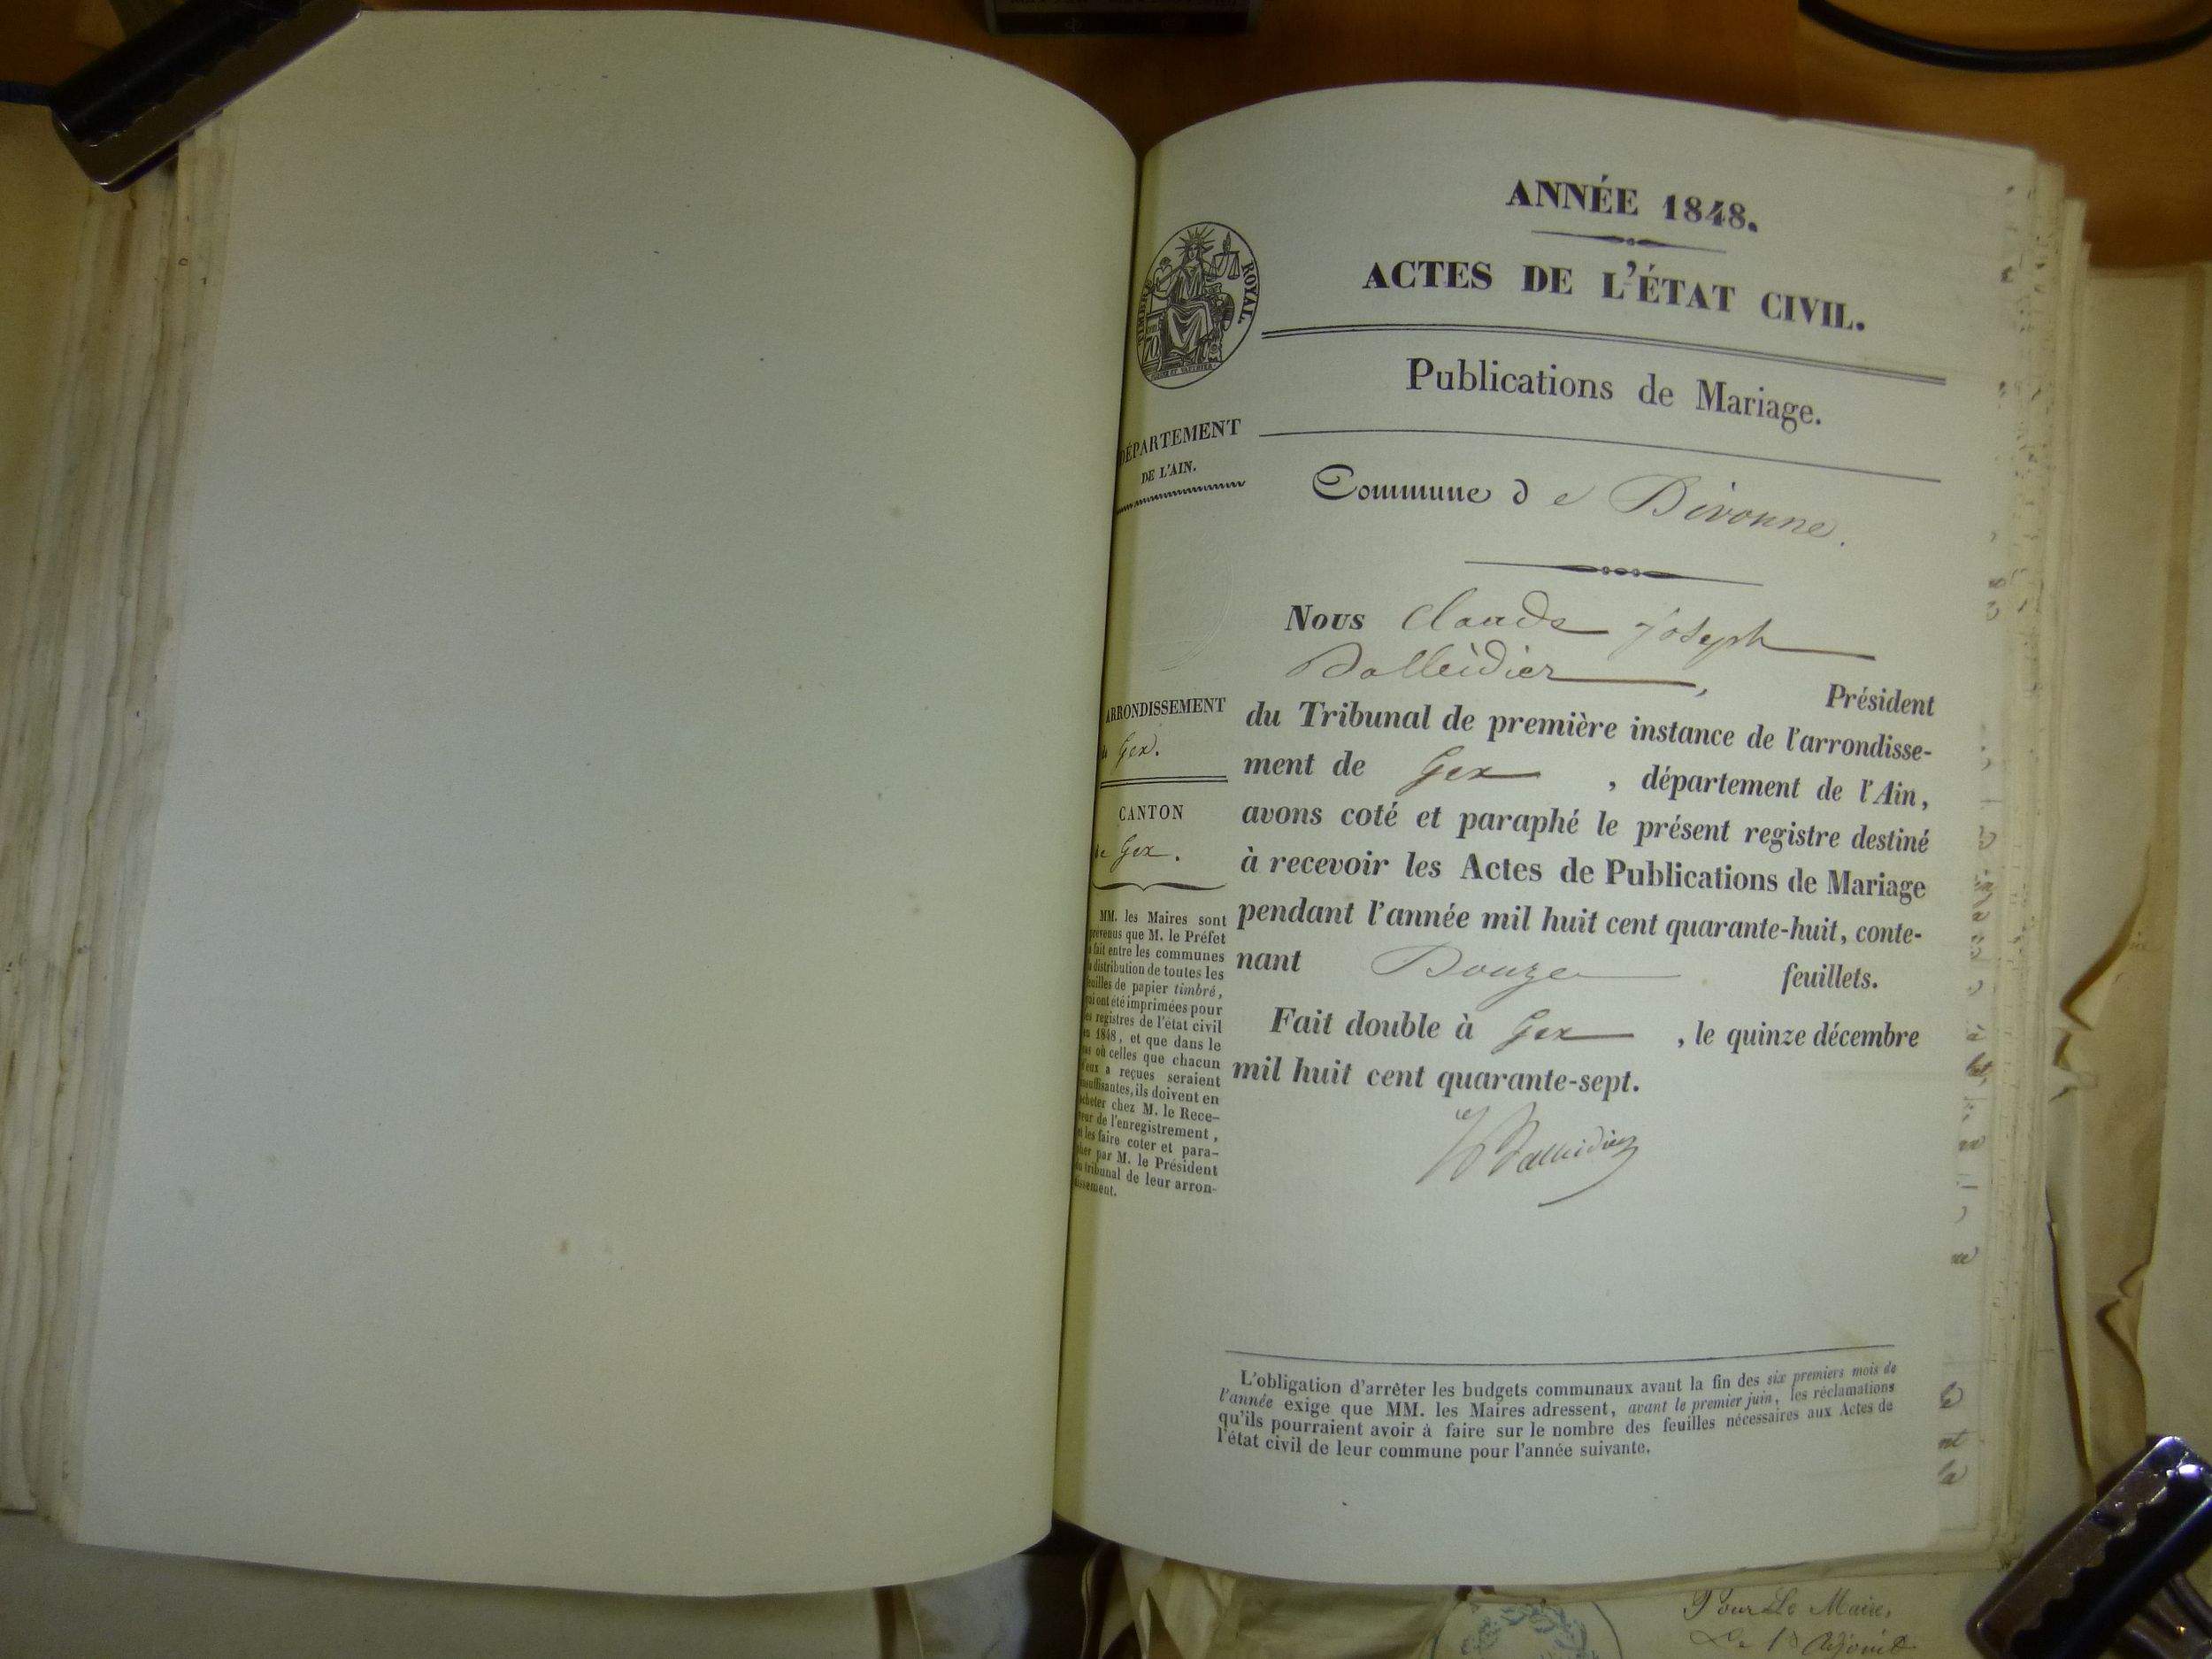 ANNÉE 1848.
ACTES DE L'ÉTAT CIVIL.
TIMBRE ROYAL
70
Publications de Mariage.
DÉPARTEMENT
DE L'AIN.
Commune de Divonne.
Nous Claude Joseph
Balleidier, Président
du Tribunal de première instance de l'arrondisse-
ment de Gex, département de l'Ain,
avons coté et paraphé le présent registre destiné
à recevoir les Actes de Publications de Mariage
pendant l'année mil huit cent quarante-huit, conte-
nant Douze feuillets.
Fait double à Gex, le quinze décembre
mil huit cent quarante-sept.
Balleidier
ARRONDISSEMENT
de Gex.
CANTON
de Gex.
MM. les Maires sont
prévenus que M. le Préfet
a fait entre les communes
la distribution de toutes les
feuilles de papier timbré,
qui ont été imprimées pour
les registres de l'état civil
en 1848, et que dans le
cas où celles que chacun
d'eux a reçues seraient
insuffisantes, ils doivent en
acheter chez M. le Rece-
veur de l'enregistrement,
et les faire coter et para-
pher par M. le Président
du tribunal de leur arron-
dissement.
L'obligation d'arrêter les budgets communaux avant la fin des six premiers mois de
l'année exige que MM. les Maires adressent, avant le premier juin, les réclamations
qu'ils pourraient avoir à faire sur le nombre des feuilles nécessaires aux Actes de
l'état civil de leur commune pour l'année suivante.
Pour Le Maire,
Le 1er Adjoint